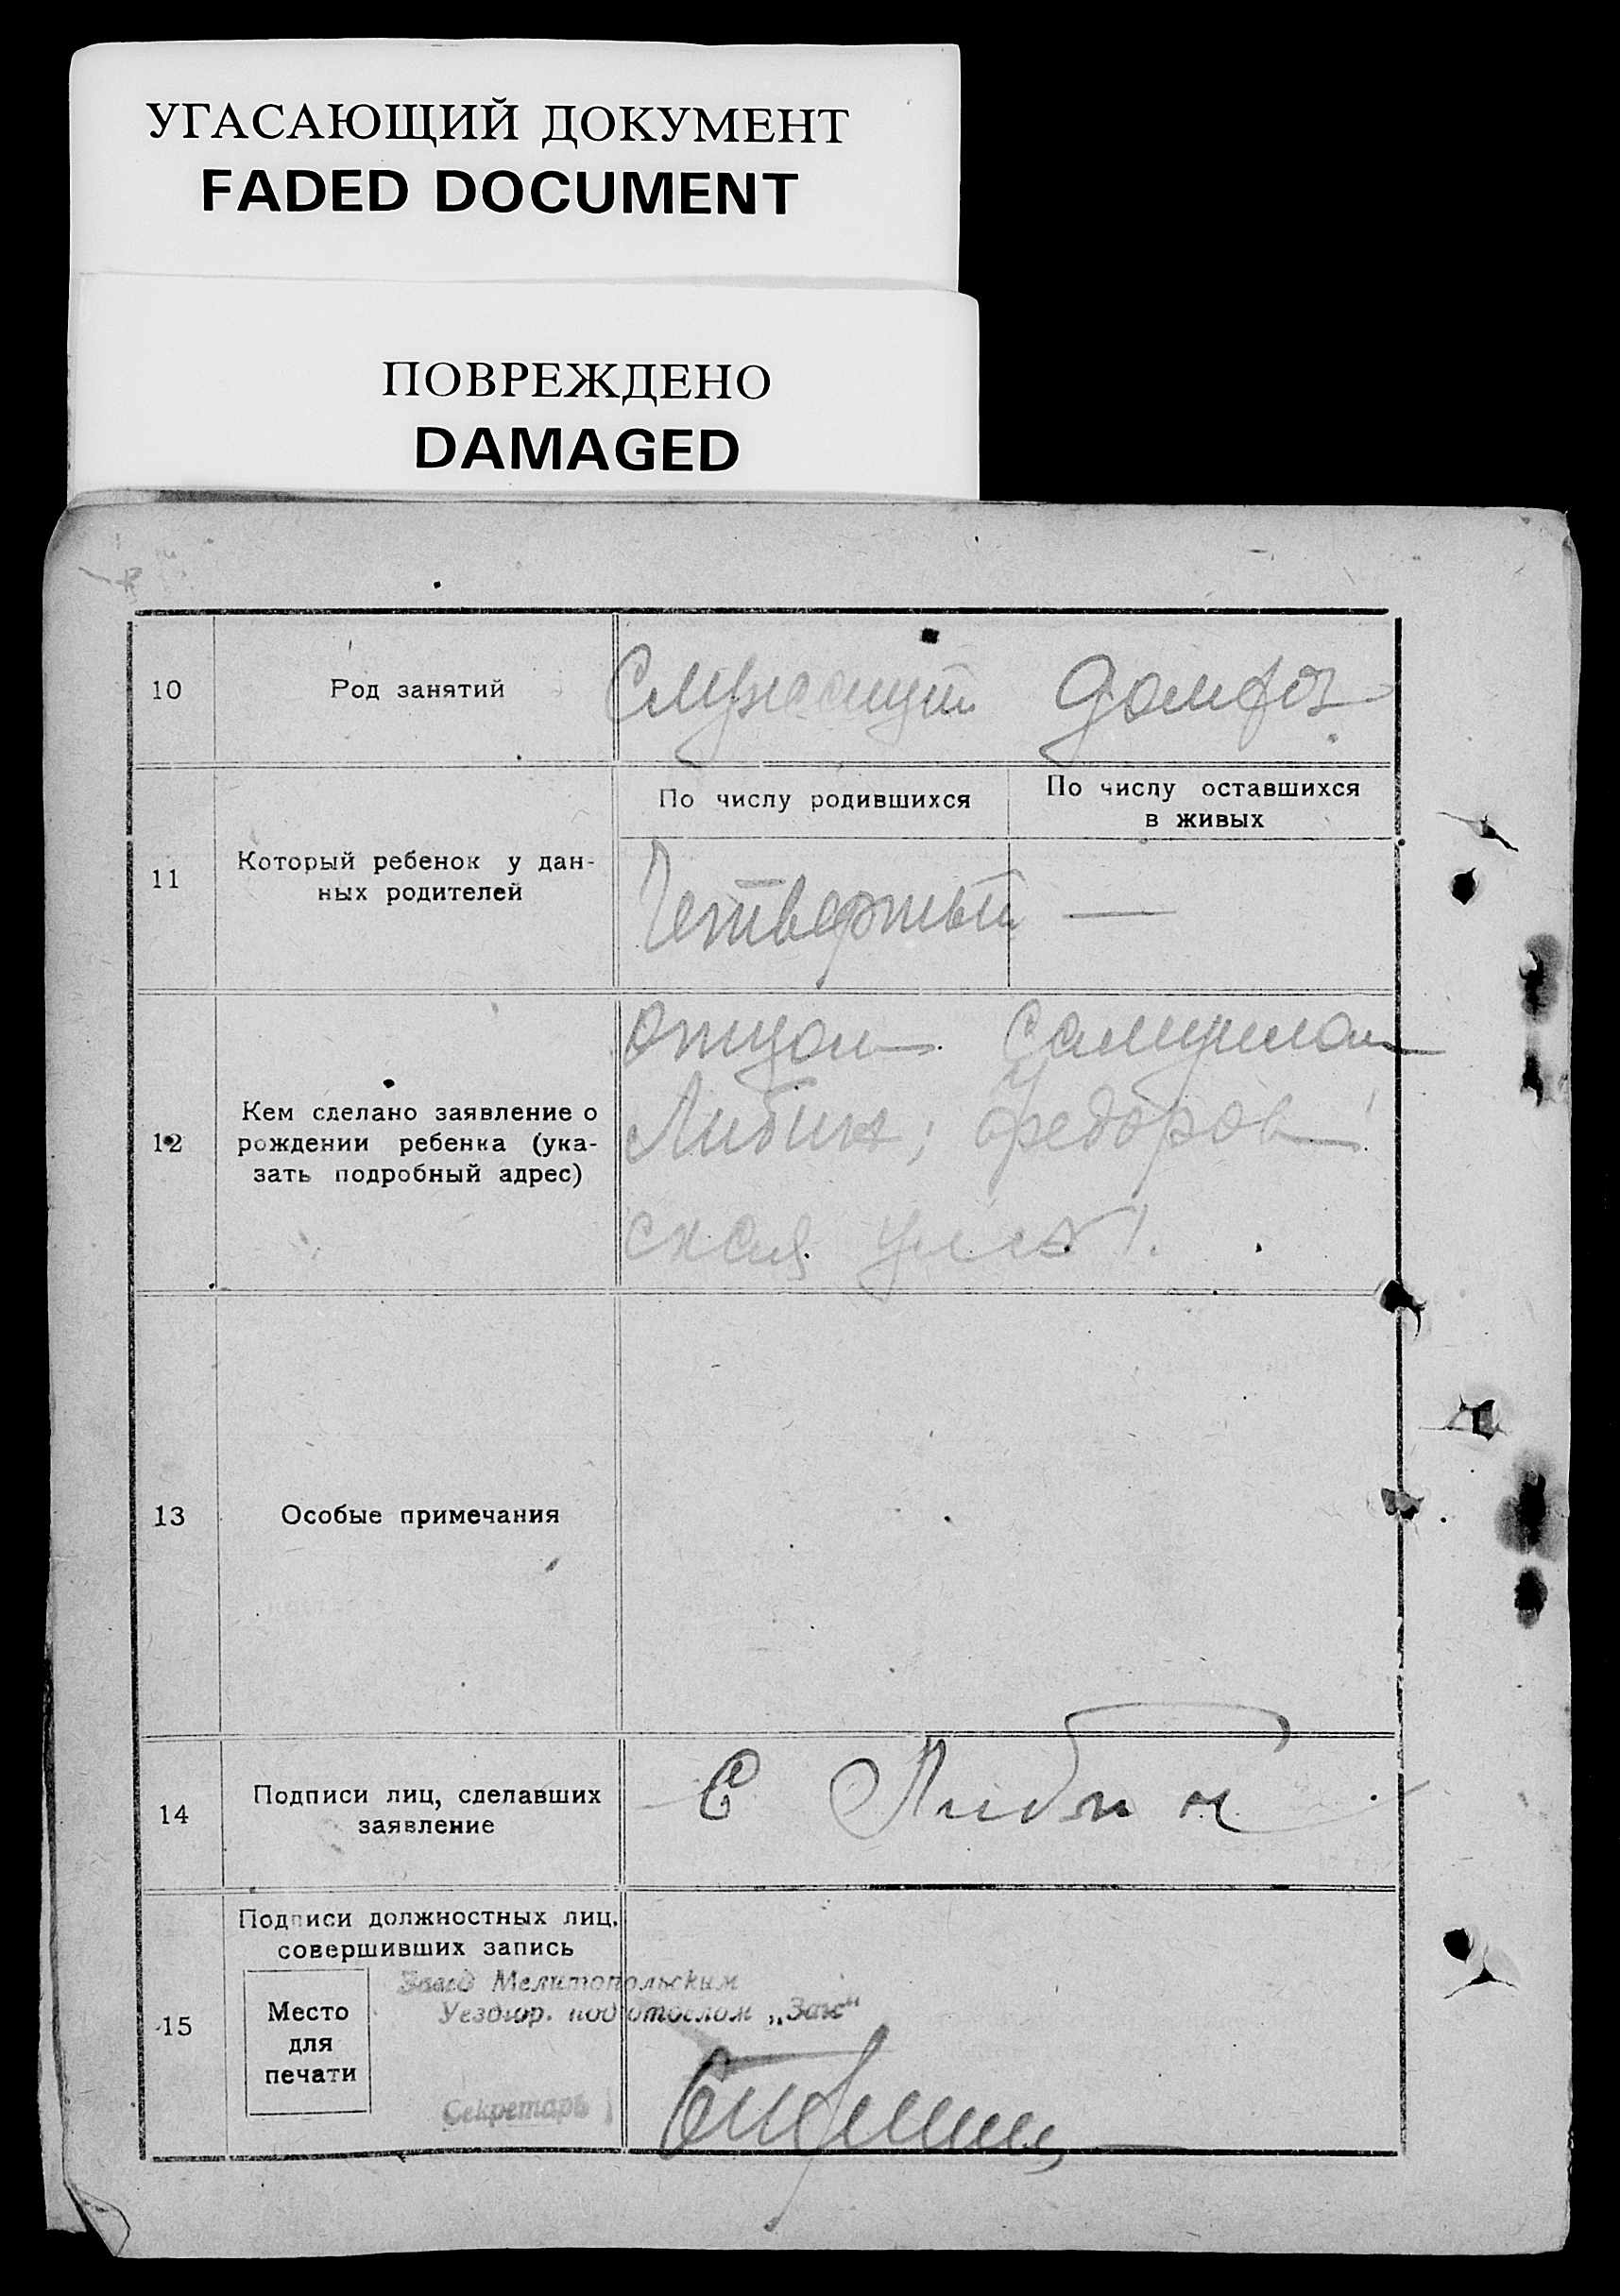 УГАСАЮЩИЙ ДОКУМЕНТ
FADED DOCUMENT
ПОВРЕЖДЕНО
DAMAGED
10
Род занятий
Служащий
11
Который ребенок у дан-
ных родителей
По числу родившихся
По числу оставшихся
в живых
Четвертый —
12
Кем сделано заявление о
рождении ребенка (ука-
зать подробный адрес)
отцом Самуилом
Либин; Федоров
ская
13
Особые примечания
14
Подписи лиц, сделавших
заявление
С Либин
15
Подписи должностных лиц,
совершивших запись
Место
для
печати
Завед Мелитопольским
Уездгор. подотделом „Загс“
Секретарь